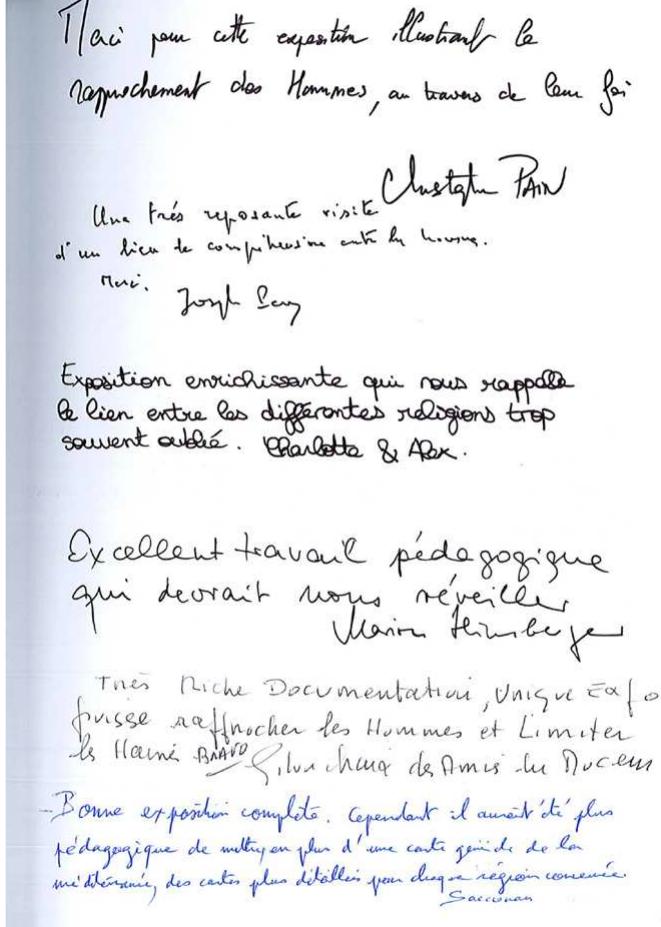 Merci pour cette exposition illustrant le
rapprochement des Hommes, au travers de leur foi
Christophe PAIN
Une très reposante visite
d'un lieu de compréhension entre les hommes.
Merci.
Joseph
Exposition enrichissante qui nous rappelle
le lien entre les différentes religions trop
souvent oublié. Charlotte & Alex.
Excellent travail pédagogique
qui devrait nous réveiller
Très Riche Documentation, Unique Expo
puisse rapprocher les Hommes et Limiter
les Haines BRAVO des Amis du Mucem
- Bonne exposition complète. Cependant il aurait été plus
pédagogique de mettre, en plus d'une carte générale de la
méditerranée, des cartes plus détaillées pour chaque région concernée.